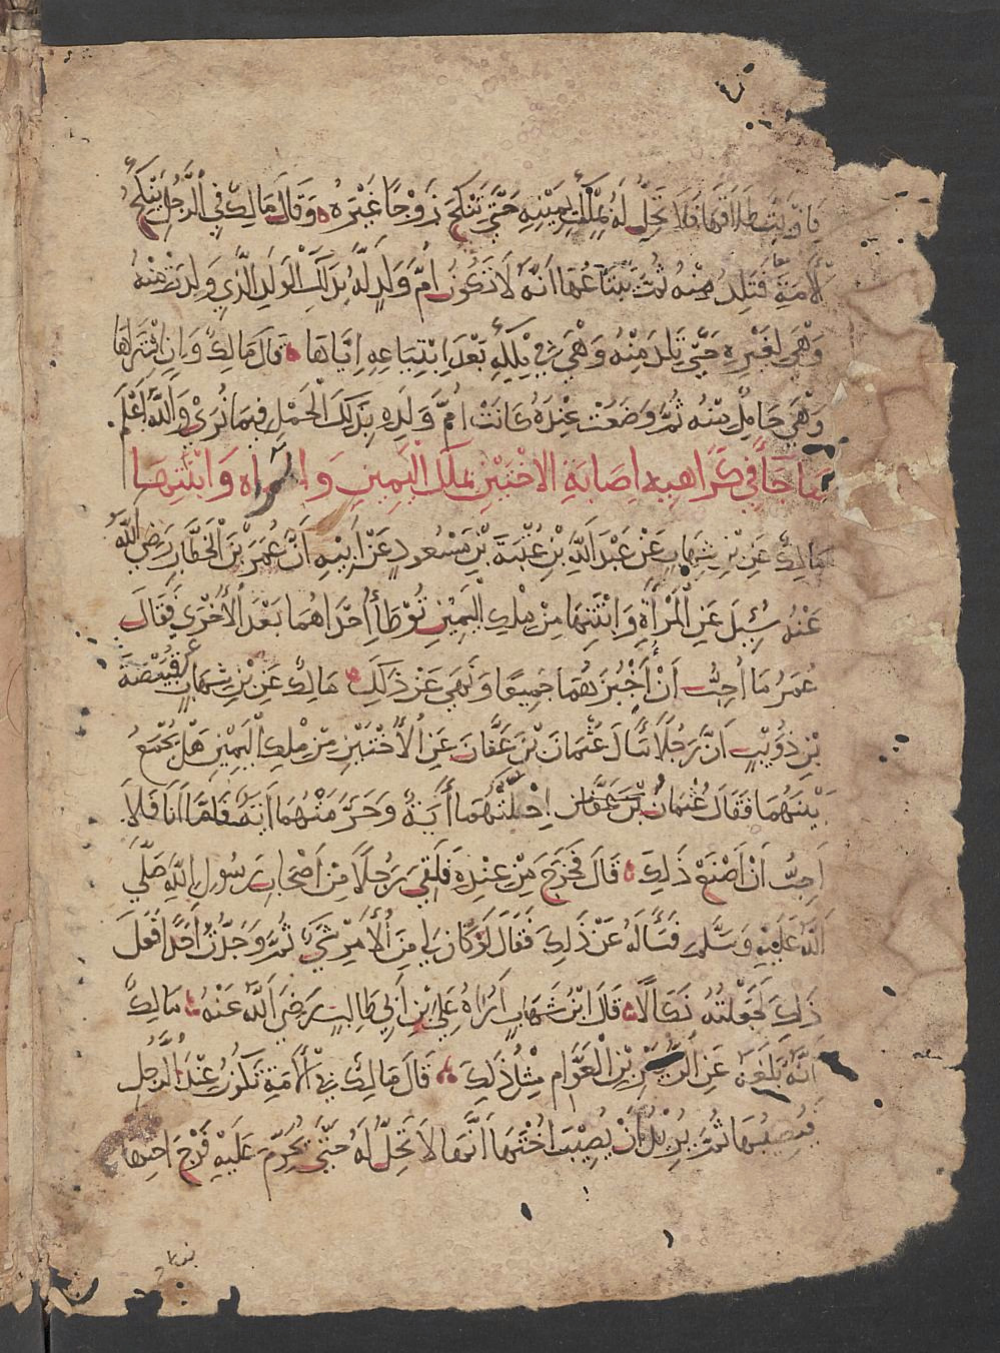 فإن بت طلاقها فلا تحل له بملك يمينه حتى تنكح زوجا غيره وقال مالك في الرجل ينكح
الأمة فتلد منه ثم يبتاعها انه لا تكون أم ولد له بذلك الولد الذي ولدت منه
وهي لغيره حتى تلد منه وهي في ملكه بعد ابتياعه اياها قال مالك وان اشتراها
وهي حامل منه ثم وضعت عنده كانت ام ولده بذلك الحمل فيما نرى والله أعلم
ما جا في كراهية اصابة الاختين بملك اليمين والمراه وابنتها
مالك عن بن شهاب عن عبد الله بن عتبة بن مسعود عن أبيه أن عمر بن الخطاب رضي الله
عنه سئل عن المرأة وابنتها من ملك اليمين توطأ أحداهما بعد الأخرى فقال
عمر ما أحب أن أخبرهما جميعا ونهى عن ذلك مالك عن بن شهاب عن قبيصة
بن ذؤيب ان رجلا سأل عثمان بن عفان عن الأختين من ملك اليمين هل يجمع
بينهما فقال عثمان بن عفان احلتهما أية وحرمتهما أية فاما انا فلا
احب أن اصنع ذلك قال فخرج من عنده فلقي رجلا من اصحاب رسول الله صلى
الله عليه وسلم فسأله عن ذلك فقال لو كان لي من الأمر شيء ثم وجدت أحدا فعل
ذلك لجعلته نكالا قال ابن شهاب اراه علي بن أبي طالب رضي الله عنه مالك
انه بلغه عن الزبير بن العوام مثل ذلك قال مالك في الأمة تكون عند الرجل
فيصيبها ثم يريد أن يصيب اختها انها لا تحل له حتى يحرم عليه فرج اختها